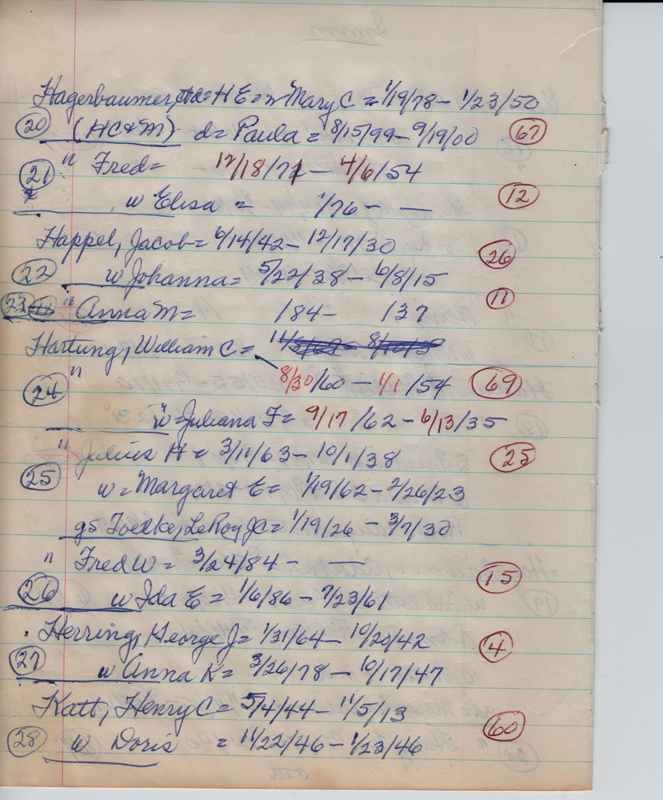 Hagerbaumer, H E = w Mary C = 1/19/78 - 1/23/50
20 (HC & M) d = Paula = 8/15/99 - 9/19/00 67
21 " Fred = 12/18/71 - 4/6/54
w Elisa = 1/76 - — 12
Happel, Jacob = 6/14/42 - 12/17/30
22 w Johanna = 5/22/38 - 6/8/15 26
23 " Anna M = 184- 137 11
Hartung, William C =
24 " 8/30/60 - 1/1/54 69
w = Juliana F = 9/17/62 - 6/13/35
" Julius H = 3/11/63 - 10/1/38 25
25 w = Margaret E = 1/19/62 - 2/26/23
gs Toedke, LeRoy JC = 1/19/26 - 3/7/30
" Fred W = 3/24/84 - —
26 w Ida E = 1/6/86 - 7/23/61 15
Herring, George J = 1/31/64 - 10/20/42
27 w Anna K = 3/26/78 - 10/17/47 4
Katt, Henry C = 5/4/44 - 11/5/13
28 w Doris = 11/22/46 - 1/23/46 60